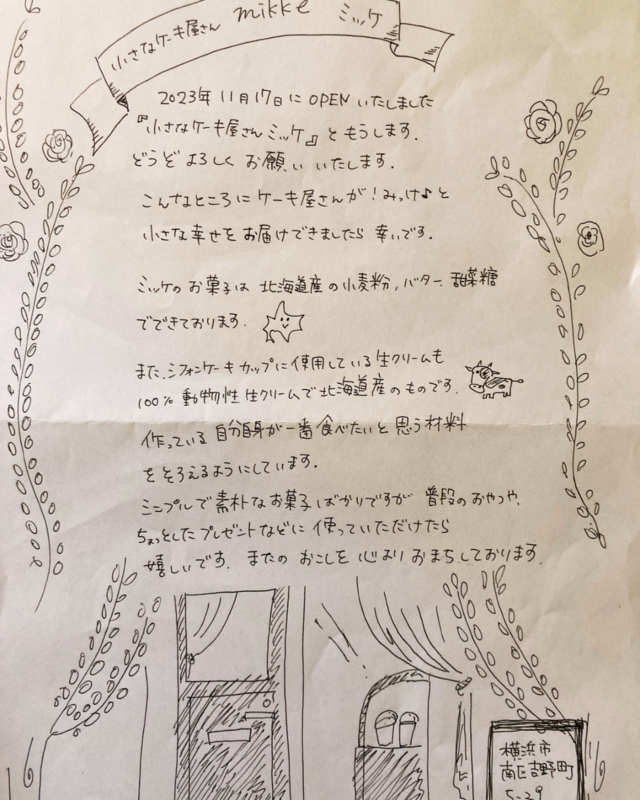 小さなケーキ屋さん mikke ミッケ
2023年 11月17日に OPEN いたしました
『小さなケーキ屋さん ミッケ』 と もうします。
どうぞ よろしく お願い いたします。
こんなところに ケーキ屋さんが！みっけ♪ と
小さな幸せを お届けできましたら 幸いです。
ミッケの お菓子は 北海道産の小麦粉、バター、甜菜糖
でできております。
また、シフォンケーキカップに使用している 生クリームも
100% 動物性 生クリームで北海道産のものです。
作っている 自分自身が 一番 食べたいと 思う 材料
を そろえるようにしています。
シンプルで 素朴な お菓子 ばかりですが 普段の おやつや、
ちょっとした プレゼント などに 使っていただけたら
嬉しいです。 またの おこしを 心より おまちしております。
横浜市
南区吉野町
5-29